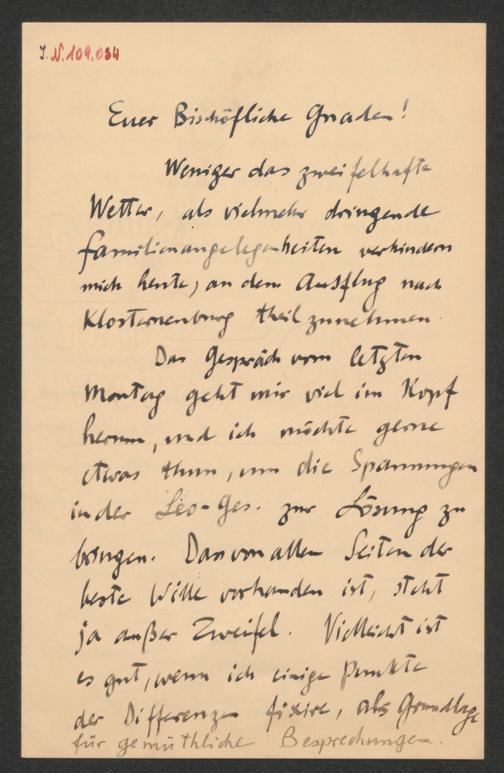 I.N. 109.034
Euer Bischöfliche Gnaden!
Weniger das zweifelhafte
Wetter, als vielmehr dringende
Familienangelegenheiten verhindern
mich heute, an dem Ausflug nach
Klosterneuburg theilzunehmen.
Das Gespräch vom letzten
Montag geht mir viel im Kopf
herum, und ich möchte gerne
etwas thun, um die Spannungen
in der Leo-Ges. zur Lösung zu
bringen. Dass von allen Seiten der
beste Wille vorhanden ist, steht
ja außer Zweifel. Vielleicht ist
es gut, wenn ich einige Punkte
der Differenzen fixire, als Grundlage
für gemüthliche Besprechungen.